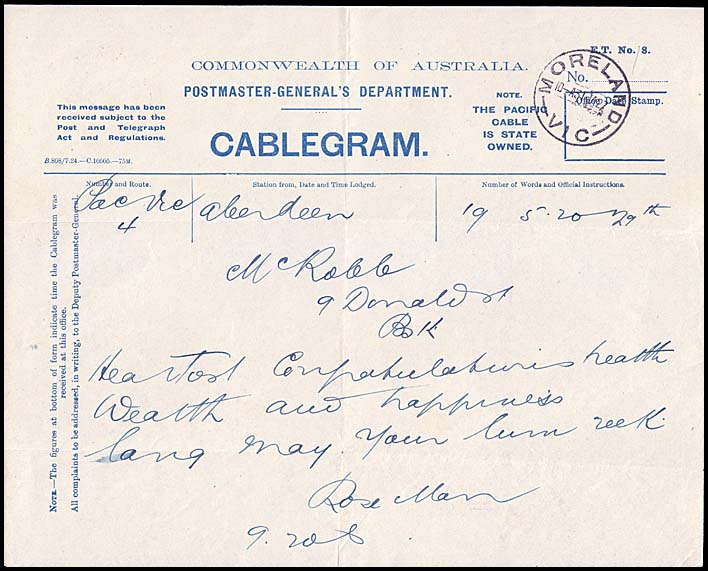 E.T. No. 8.
COMMONWEALTH OF AUSTRALIA.
POSTMASTER-GENERAL'S DEPARTMENT.
This message has been
received subject to the
Post and Telegraph
Act and Regulations.
B.808/7.24.—C.10005.—75M.
CABLEGRAM.
NOTE.
THE PACIFIC
CABLE
IS STATE
OWNED.
No.
Office Date Stamp.
MORELAND
VIC
Number and Route.
Station from, Date and Time Lodged.
Number of Words and Official Instructions.
Pac Vic aberdeen 19 5.20 29th
4
McRobb
9 Donald st
Bsk
Heartost Congratulations health
Wealth and happiness
lang may your lum reek
Rose Mann
9.20
NOTE.—The figures at bottom of form indicate time the Cablegram was
received at this office.
All complaints to be addressed, in writing, to the Deputy Postmaster-General.